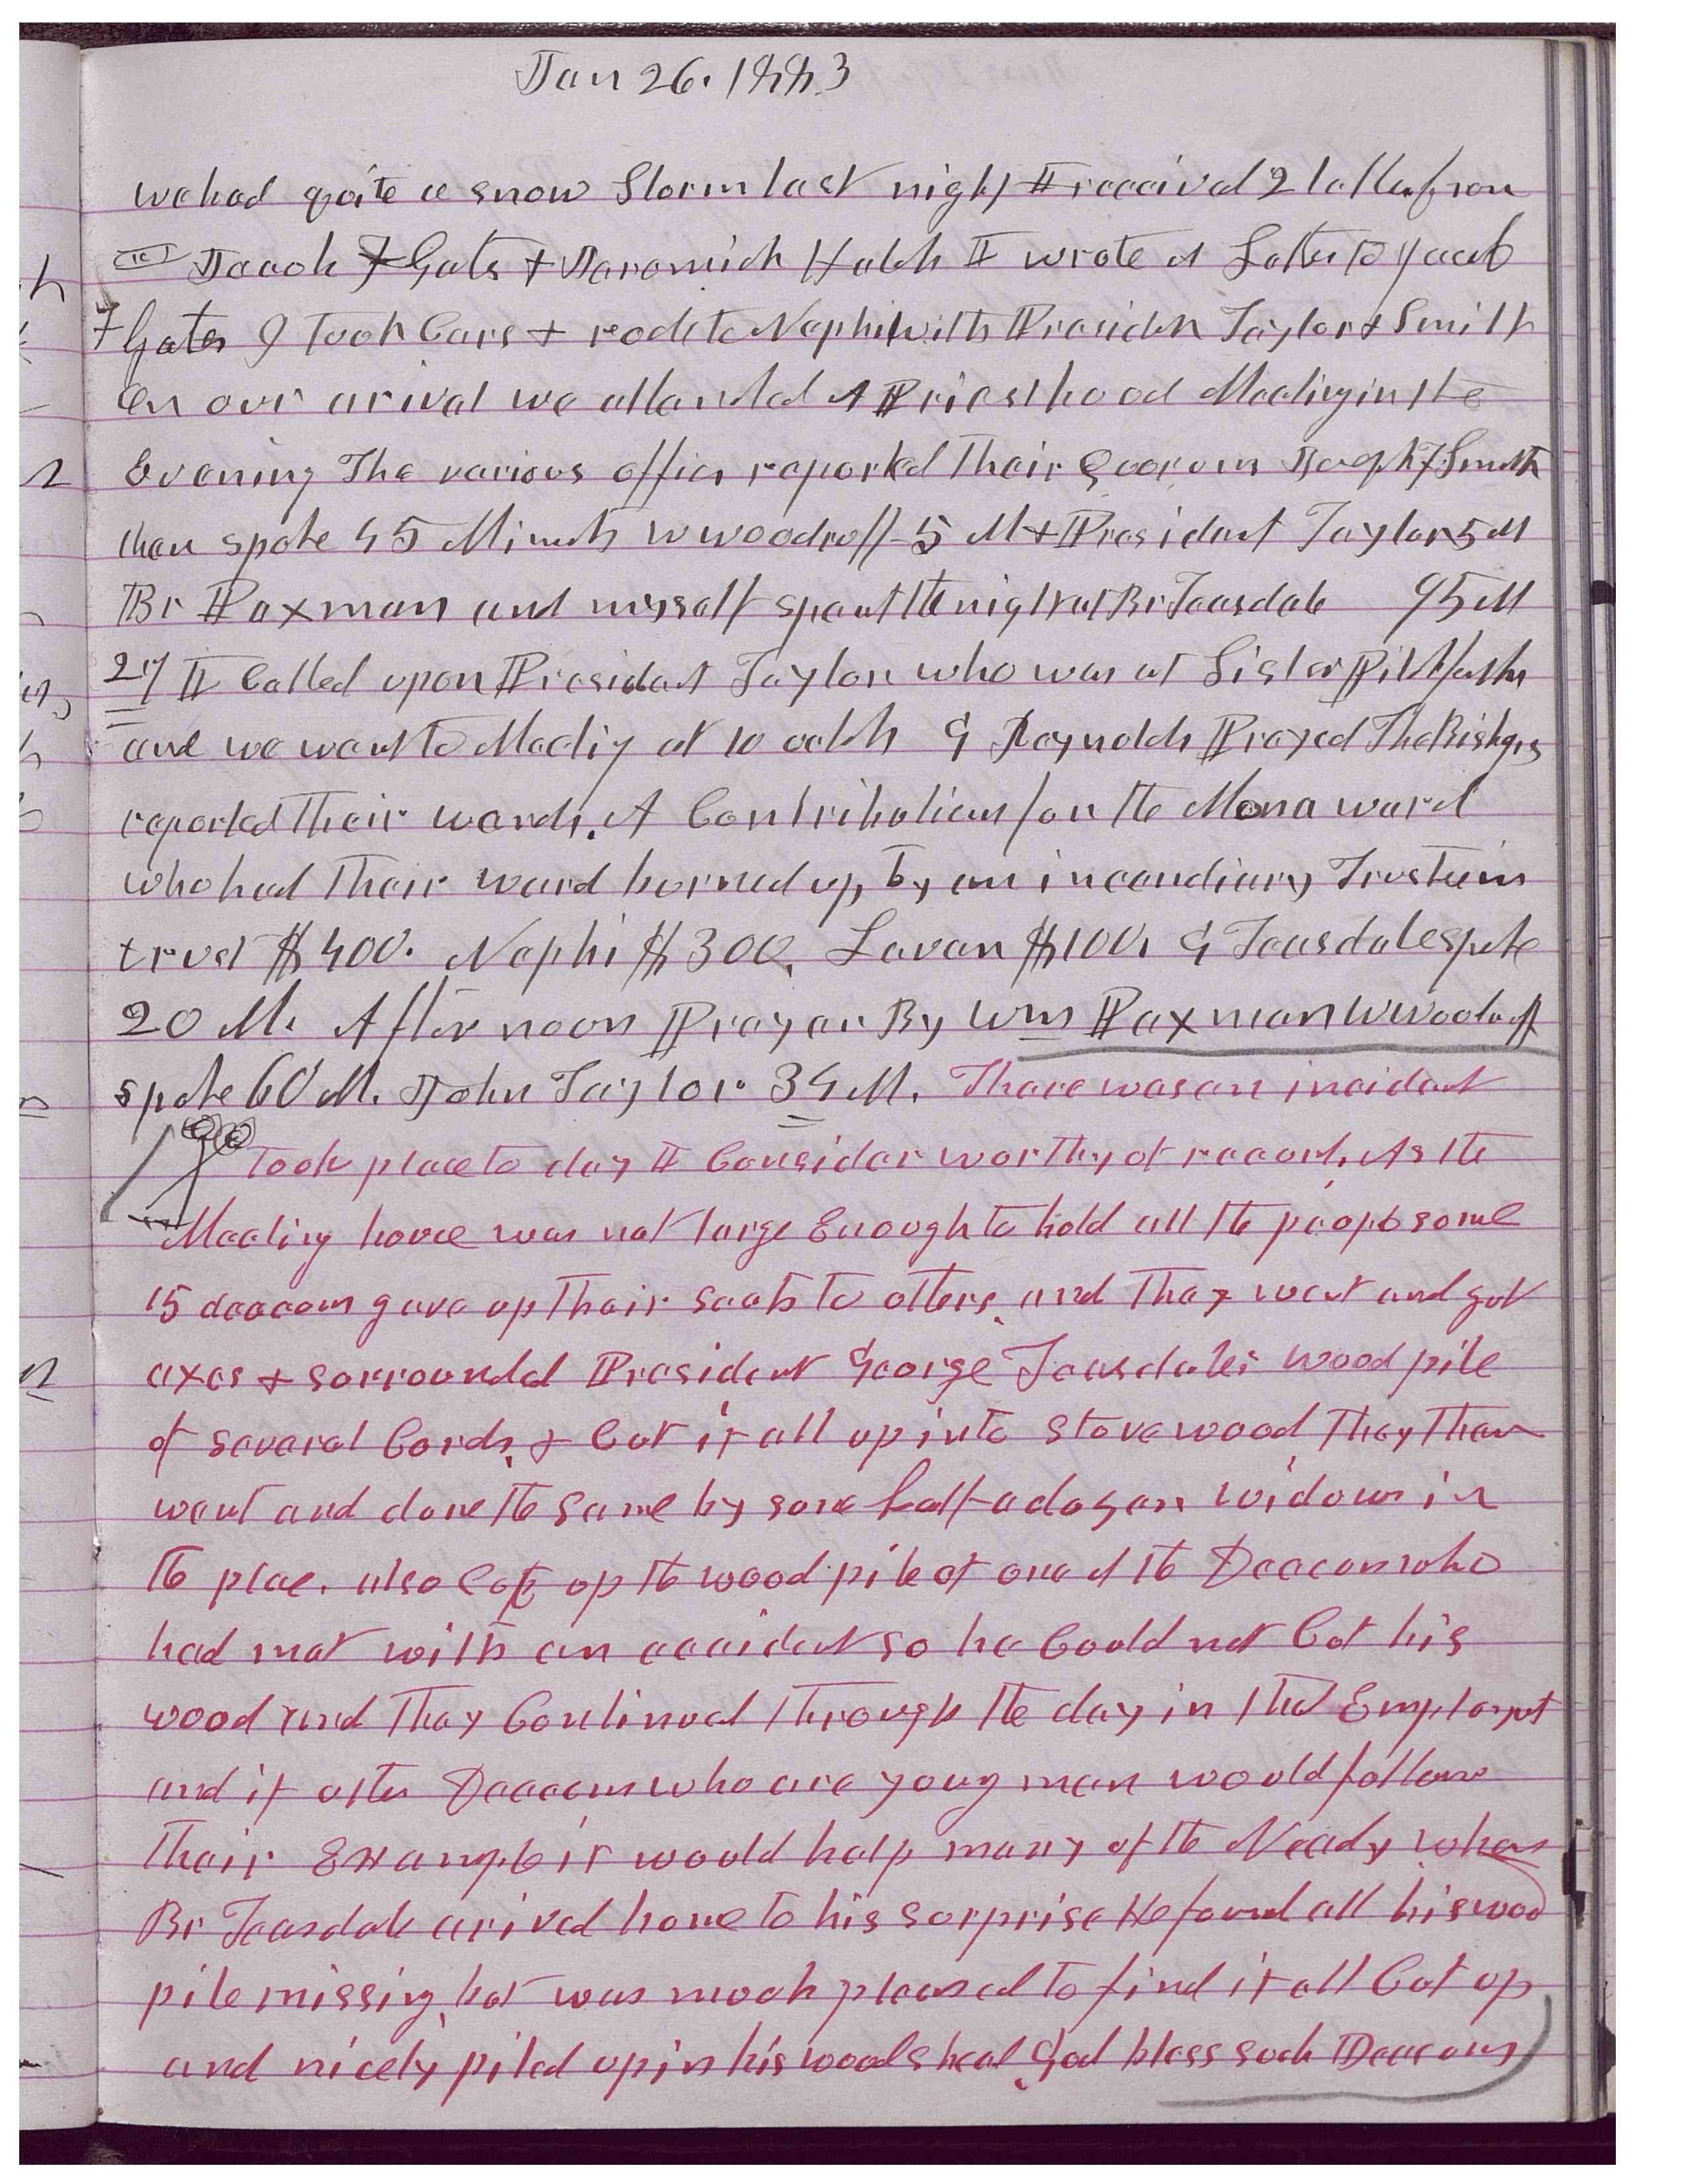 Jan 26. 1883
we had quite a snow Storm last night I received 2 letters from
Jacob F Gates + Jeremiah Hatch I wrote A Letter to Jacob
F Gates I took Cars + rode to Nephi with President Taylor + Smith
On our arival we attended A Priesthood Meeting in the
Evening The various offices reported their Quorum Joseph F Smith
then spoke 45 Minuts W Woodruff 5 M + President Taylor 5 M
Br Paxman and myself spent the night at Br Teasdale 95 M
27 I Called upon President Taylor who was at Sister
and we went to Meeting at 10 oclok G Reynolds Prayed The Bishops
reported their wards. A Contribution for the Mona ward
who had their ward burned up by an incendiary Trustee in
trust $400. Nephi $300, Levan $100, G Teasdale spoke
20 M. Afternoon Prayer By Wm Paxman W Woodruff
spoke 60 M. John Taylor 34 M. There was an incident
Took place to day I Consider worthy of record. As the
Meeting house was not large Enough to hold all the people some
15 deacons gave up their seats to others, and they went and got
axes + surrounded President George Teasdales wood pile
of several Cords, + Cut it all up into stove wood They then
went and done the same by some half a dozen widows in
the place. also cut up the wood pile of one of the Deacons who
had met with an accident so he Could not Cut his
wood and they Continued through the day in this Employmt
and if other Deacons who are young men would follow
their Example it would help many of the Needy when
Br Teasdale arived home to his surprise He found all his wood
pile missing, but was much pleased to find it all Cut up
and nicely piled up in his woodshead. God bless such Deacons